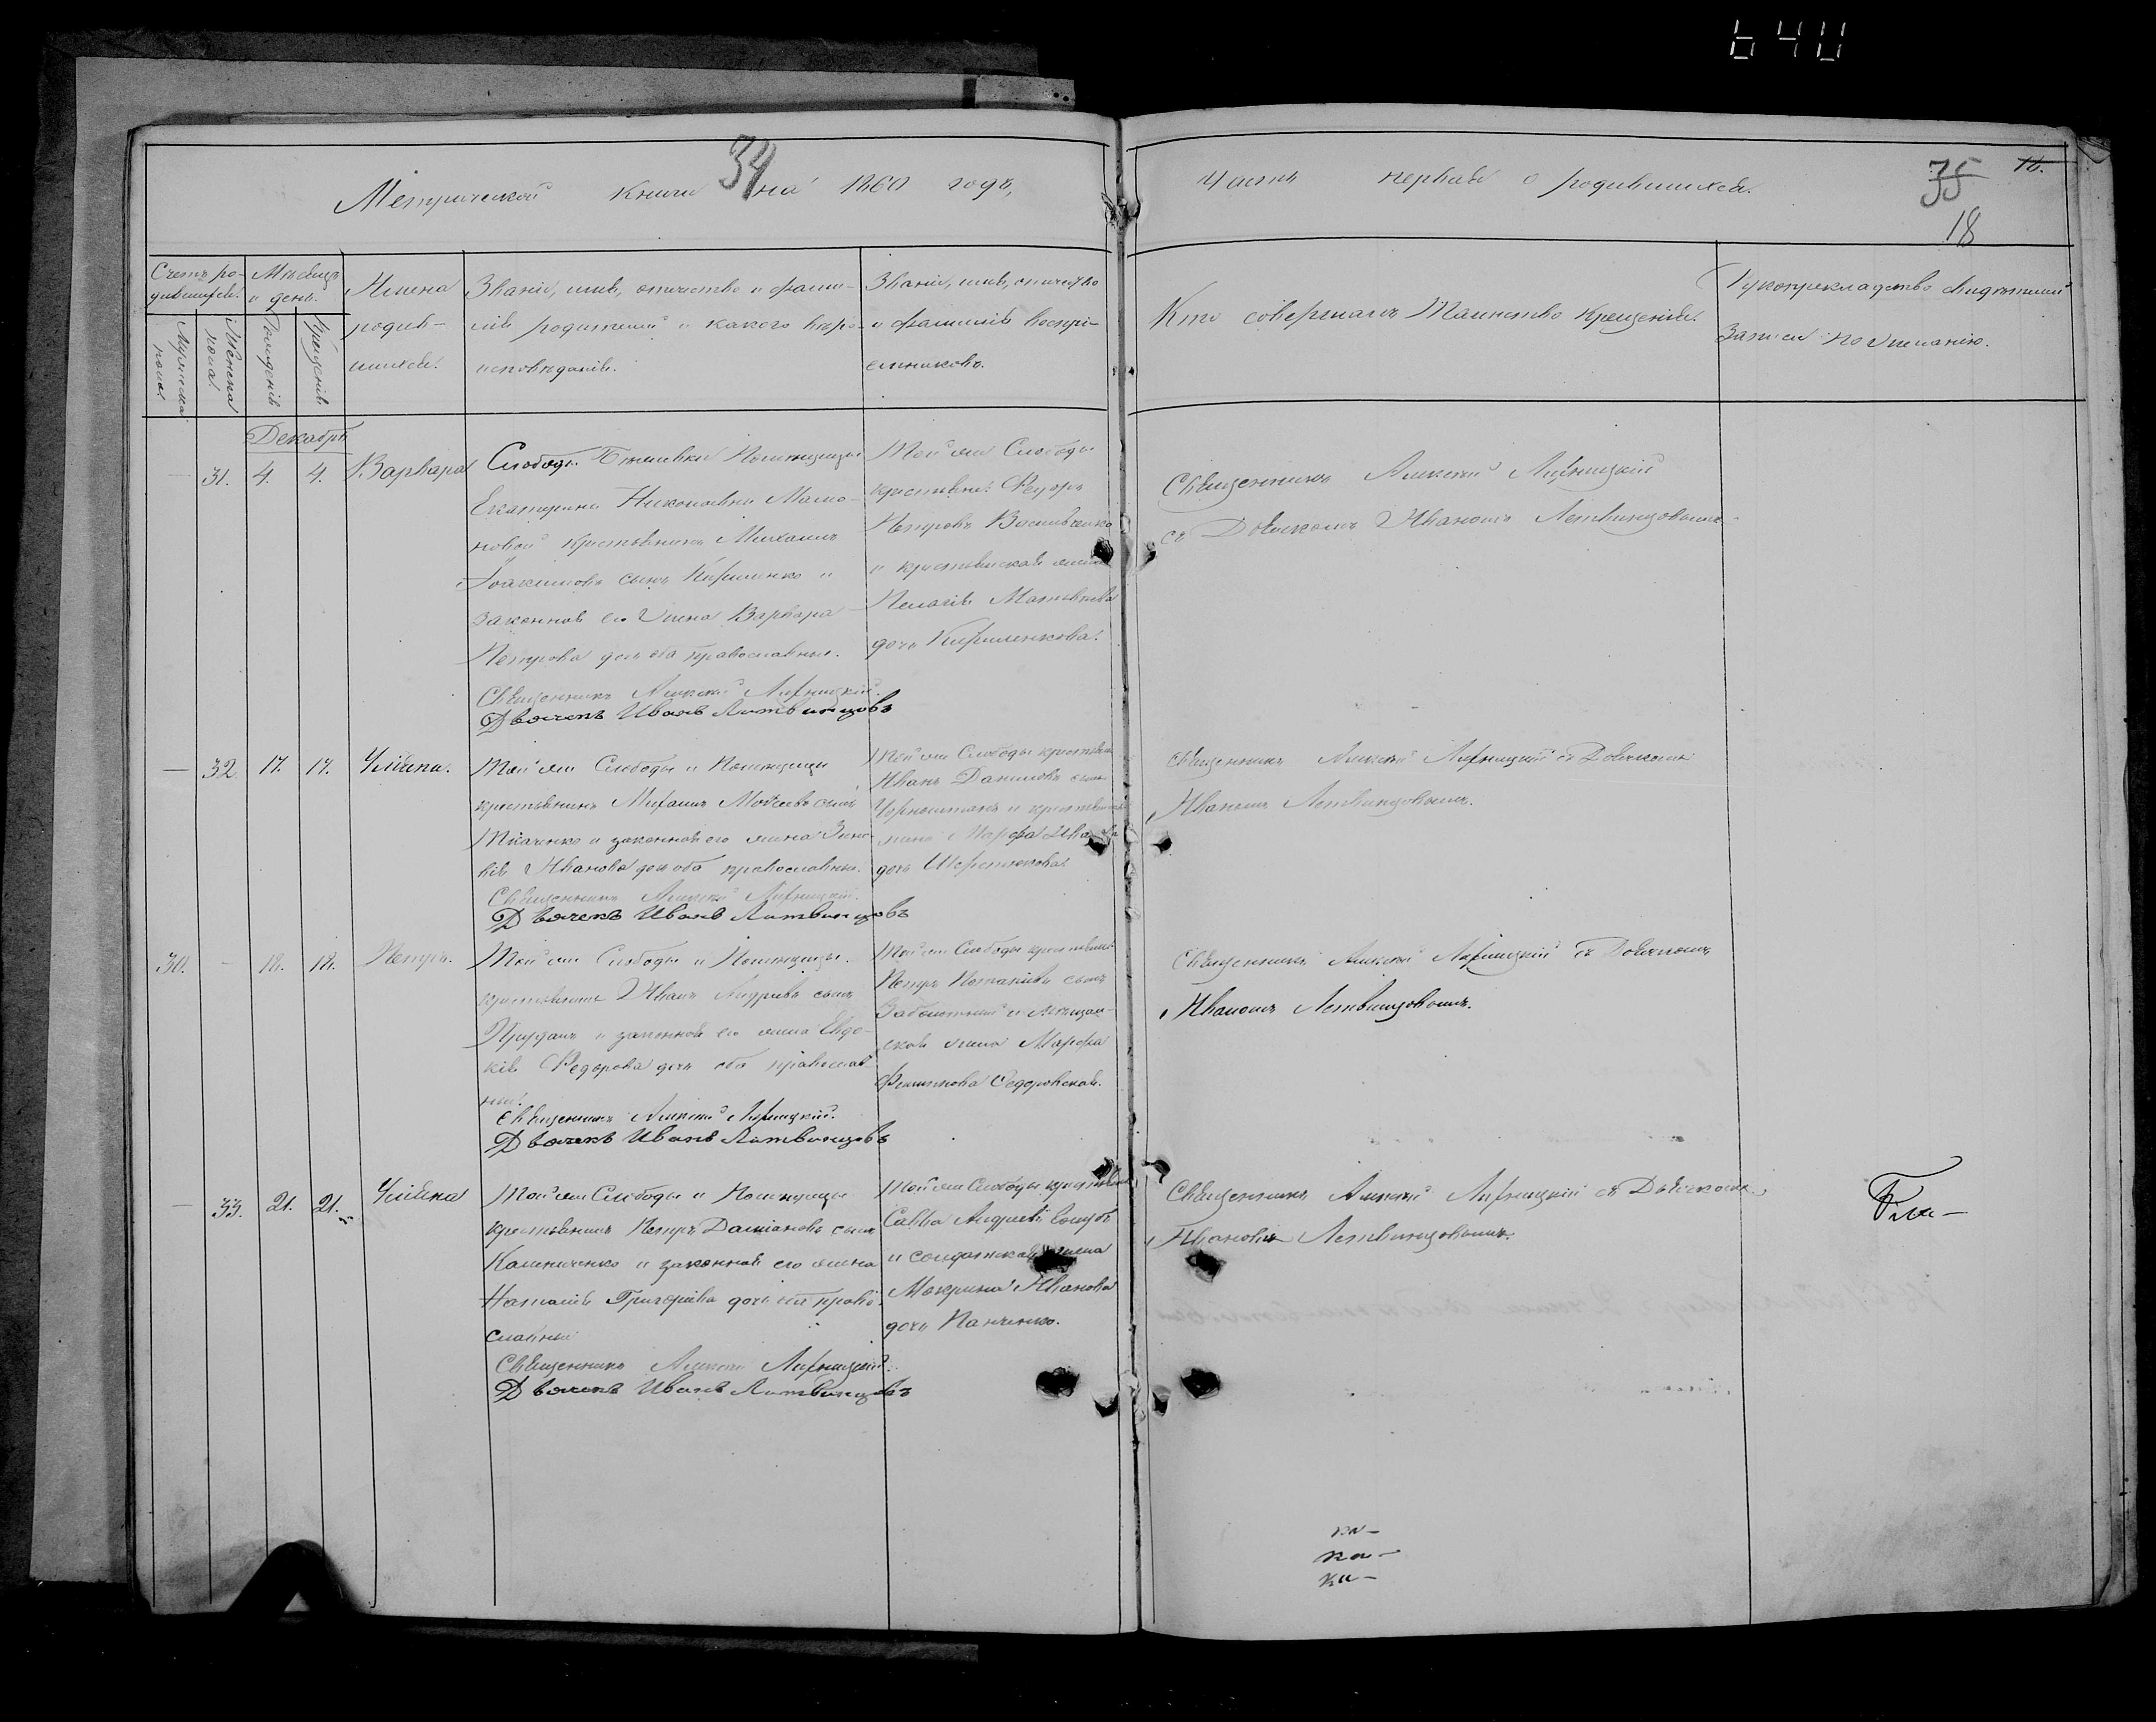 640
34
Метрической книги на 1860 годъ,
Часть первая о родившихся.
35
18
Счетъ ро-
дившихся.
Мужеска
пола.
Женска
пола.
Мѣсяцъ
и день.
Рожденія
Крещенія.
Имена
родив-
шихся.
Званіе, имя, отчество и фами-
лія родителей и какого вѣро-
исповѣданія.
Званіе, имя, отчество
и фамилія воспрі-
емниковъ.
Кто совершалъ Таинство Крещенія.
Рукоприкладство свидѣтелей
записи по желанію.
Декабрь
31. 4. 4. Варвара
Слободы Помещицы
Екатерины Николаевны Мано-
новой крестьянинъ Михаилъ
Іоакимовъ сынъ Кириленко и
законная его жена Варвара
Петрова дочь оба православные.
Священникъ Алексій
Дьячекъ Иванъ Литвинцовъ
Той же Слободы
крестьянинъ Федоръ
Петровъ Василенко
и крестьянская жена
Пелагія Матвѣева
дочь Кириленкова.
Священникъ Алексій
съ Дьячкомъ Иваномъ Летвинцовымъ
— 32 17. 17. Уліяна.
Той же Слободы и Помещицы
крестьянинъ Михаилъ Моѵсеевъ сынъ
Ткаченко и законная его жена Зино-
вія Иванова дочь оба православные.
Священникъ Алексій
Дьячекъ Иванъ Литвинцовъ
Той же Слободы крестьянинъ
Иванъ Даниловъ сынъ
и крестьянская
жена Марфа Иванова
дочь
Священникъ Алексій съ Дьячкомъ
Иваномъ Летвинцовымъ.
30. — 18. 18. Петръ.
Той же Слободы и Помещицы
крестьянинъ Иванъ Андреевъ сынъ
и законная его жена Евдо-
кія Федорова дочь оба православ-
ные.
Священникъ Алексій
Дьячекъ Иванъ Литвинцовъ
Той же Слободы крестьянинъ
Петръ сынъ
и мещан-
ская жена Марфа
Федоровская.
Священникъ Алексій съ Дьячкомъ
Иваномъ Летвинцовымъ.
— 33. 21. 21. Уліяна
Той же Слободы и Помещицы
крестьянинъ Петръ Даміановъ сынъ
Калиниченко и законная его жена
Наталія Григорьева дочь оба право-
славные
Священникъ Алексій
Дьячекъ Иванъ Литвинцовъ
Той же Слободы крестьянинъ
Савва Андреевъ Голубъ
и солдатская жена
Макрина Иванова
дочь Панченко.
Священникъ Алексій съ Дьячкомъ
Иваномъ Летвинцовымъ.